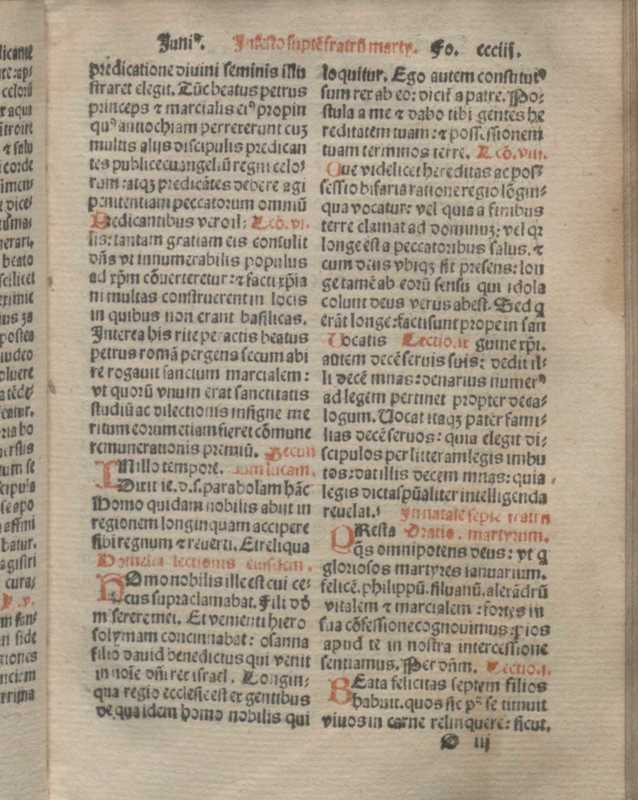 Juniꝰ. In festo septē fratrū marty. Fo. ccciij.
predicatione diuini seminis illu
straret elegit. Tūc beatus petrus
princeps ⁊ marcialis eiꝰ propin
quꝰ antiochiam perrexerunt cuȝ
multis alijs discipulis predican
tes publice euangeliū regni celo-
rum: atqȝ predicātes debere agi
penitentiam peccatorum omniū
Predicantibus vero il: Lcō. vi.
lis: tantam gratiam eis contulit
dn̄s vt innumerabilis populus
ad xp̄m cōuerteretur: ⁊ facti xp̄ia
ni multas construerent in locis
in quibus non erant basilicas.
Interea his rite peractis beatus
petrus romā pergens secum abi
re rogauit sanctum marcialem:
vt quorū vnum erat sanctitatis
studiū ac dilectionis insigne me
ritum eorum etiam fieret cōmune
remunerationis premiū. Secun
IN illo tempore. dum lucam.
Dixit ie. d. s. parabolam hāc
Homo quidam nobilis abijt in
regionem longinquam accipere
sibi regnum ⁊ reuerti. Et reliqua
Homelia lectionis eiusdem.
HOmo nobilis ille est cui ce-
cus supra clamabat. Fili dd
miserere mei. Et venienti hiero
solymam concinnabat: osanna
filio dauid benedictus qui venit
in noīe dn̄i rex israel. Longin-
qua regio ecclesie est ex gentibus
de qua idem homo nobilis qui
loquitur. Ego autem constitutꝰ
sum rex ab eo: dicit a patre. Po-
stula a me ⁊ dabo tibi gentes he
reditatem tuam: ⁊ possessionem
tuam terminos terre. Lcō. viij.
Que videlicet hereditas ac pos-
sessio bifaria ratione regio lōgin-
qua vocatur: vel quia a finibus
terre clamat ad dominuȝ: vel qꝛ
longe est a peccatoribus salus. ⁊
cum deus vbiqȝ sit presens: lon
ge tamē ab eorū sensu qui idola
colunt deus verus abest. Sed q
erāt longe: facti sunt prope in san
Vocatis Lectio. ix guine xp̄i.
autem decē seruis suis: dedit il-
li decē mnas: denarius numerꝰ
ad legem pertinet propter deca-
logum. Uocat itaqȝ pater fami-
lias decē seruos: quia elegit di-
scipulos per litteram legis imbu
tos: dat illis decem mnas: quia
legis dicta sp̄ualiter intelligenda
reuelat. In natale septē fratrū
PResta Oratio. martyrum.
qs̄ omnipotens deus: vt q
gloriosos martyres ianuarium.
felicē. philippū. siluanū. alexādrū
vitalem ⁊ marcialem: fortes in
sua cōfessione cognouimus: pios
apud te in nostra intercessione
sentiamus. Per dn̄m. Lectio. i.
BEata felicitas septem filios
habuit. quos sic pꝰ se timuit
viuos in carne relinquere: sicut.
O iij